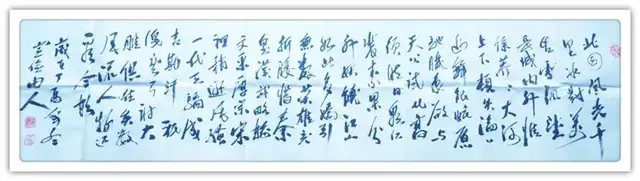 北国风光千
里冰封万
里雪飘望
长城内外惟
余莽莽大河
上下顿失滔滔
山舞银蛇原
驰蜡象欲与
天公试比高
须晴日看红
装素裹分
外妖娆江山
如此多娇引
无数英雄竞
折腰惜秦
皇汉武略输
文采唐宗宋
祖稍逊风骚
一代天骄成
吉思汗只
识弯弓射大
雕俱往矣数
风流人物还
看今朝
岁在丁酉
山人